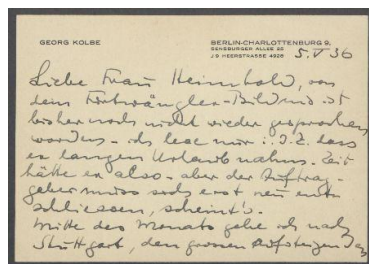 GEORG KOLBE
BERLIN-CHARLOTTENBURG 9,
SENSBURGER ALLEE 25
J 9 HEERSTRASSE 4928
5. V 36
Liebe Frau Heimbold, von
dem Furtwängler-Bildnis ist
bisher noch nicht wieder gesprochen
worden. – ich lese nur i. d. Z. dass
er langen Urlaub nahm. Zeit
hätte er also – aber der Auftrag-
geber muss sich erst neu ent-
schliessen, scheint's.
Mitte des Monats gehe ich nach
Stuttgart, den grossen aufsteigenden